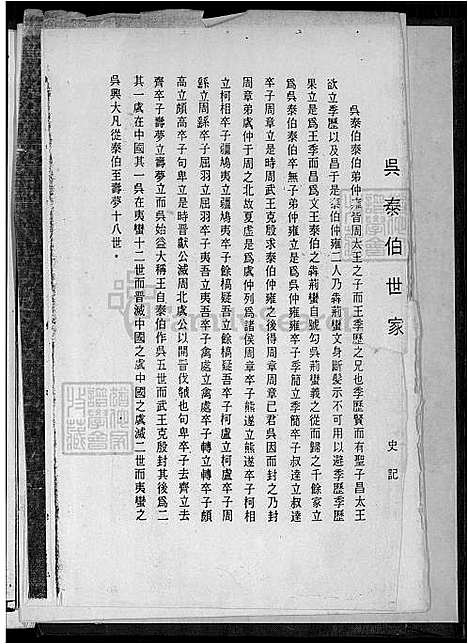 吳泰伯世家
史記
吳泰伯泰伯弟仲雍皆周太王之子而王季歷之兄也季歷賢而有聖子昌太王
欲立季歷以及昌于是泰伯仲雍二人乃犇荊蠻文身斷髮示不可用以避季歷季歷
果立是爲王季而昌爲文王泰伯之犇荊蠻自號勾吳荊蠻義之從而歸之千餘家立
爲吳泰伯泰伯卒無子弟仲雍立是爲吳仲雍仲雍卒子季簡立季簡卒子叔達立叔達
卒子周章立是時周武王克殷求泰伯仲雍之後得周章周章已君吳因而封之乃封
周章弟虞仲于周之北故夏虛是爲虞仲列爲諸侯周章卒子熊遂立熊遂卒子柯相
立柯相卒子彊鳩夷立彊鳩夷卒子餘橋疑吾立餘橋疑吾卒子柯盧立柯盧卒子周
繇立周繇卒子屈羽立屈羽卒子夷吾立夷吾卒子禽處立禽處卒子轉立轉卒子頗
高立頗高卒子句卑立是時晉獻公滅周北虞公以開晉伐虢也句卑卒子去齊立去
齊卒子壽夢立壽夢立而吳始益大稱王自泰伯作吳五世而武王克殷封其後爲二
其一虞在中國其一吳在夷蠻十二世而晉滅中國之虞中國之虞滅二世而夷蠻之
吳興大凡從泰伯至壽夢十八世。